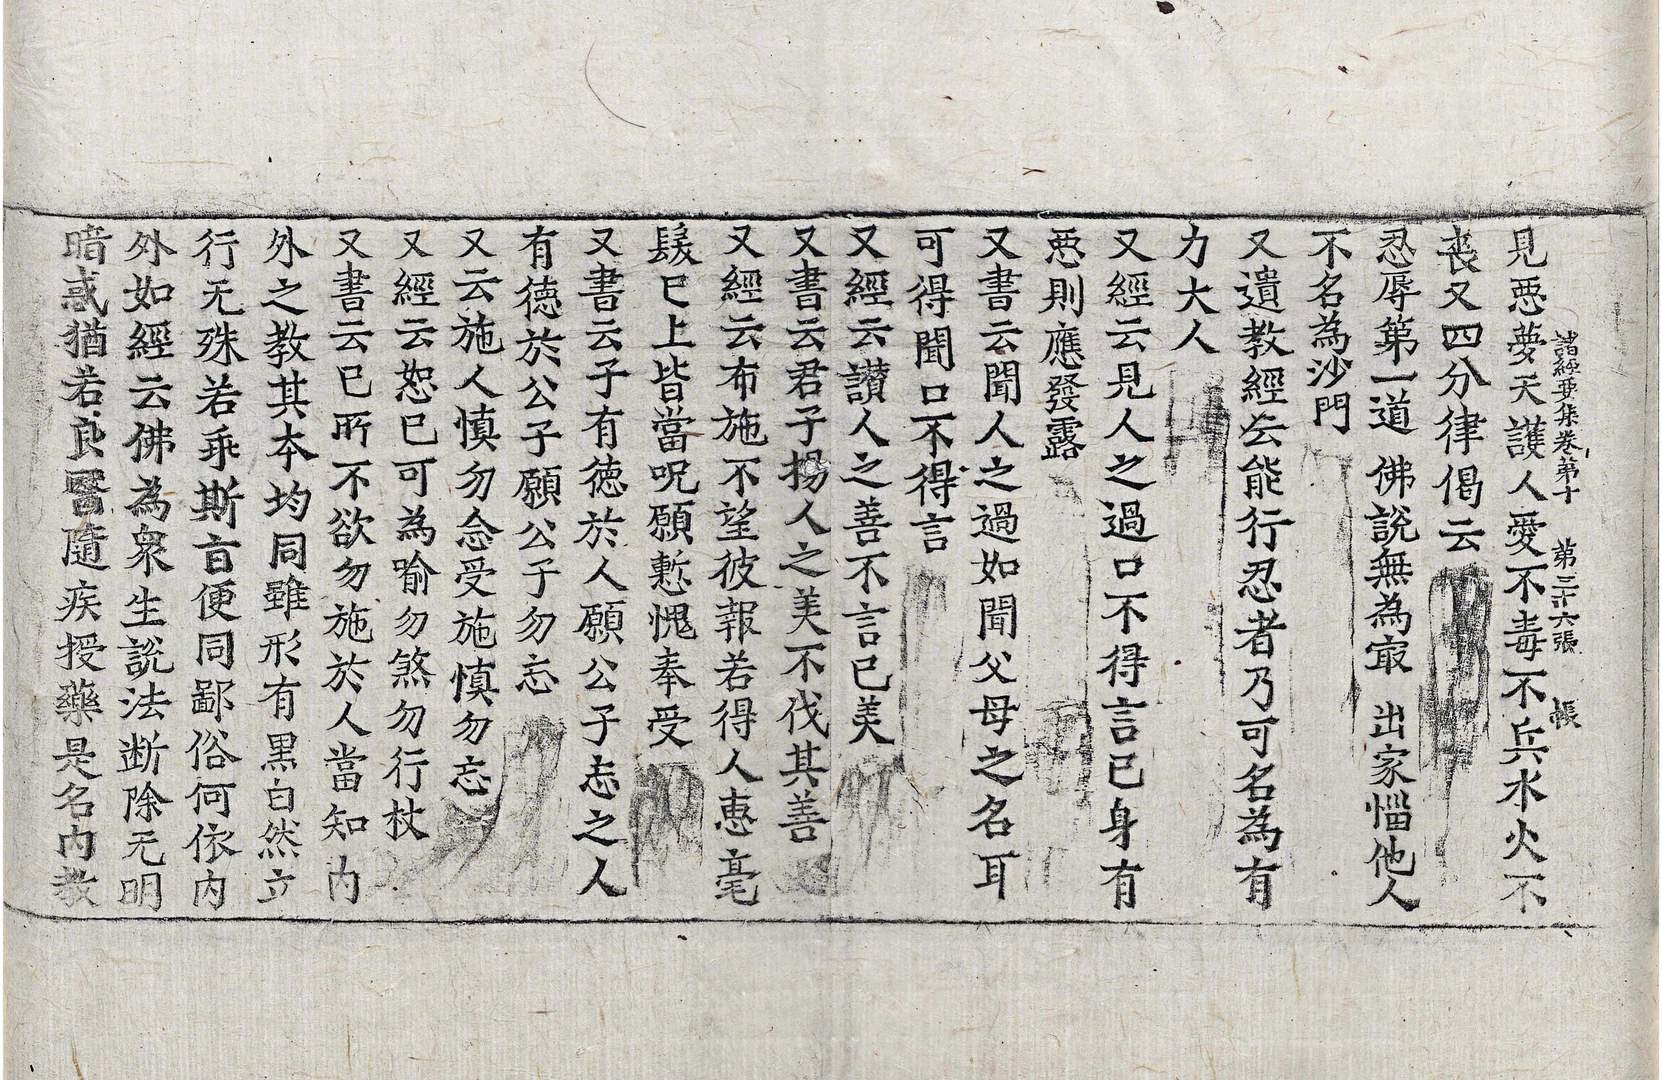 諸經要集卷第十 第三十六張 帳
見惡夢天護人愛不毒不兵水火不
喪又四分律偈云
忍辱第一道 佛說無為㝡 出家惱他人
不名為沙門
又遺教經云能行忍者乃可名為有
力大人
又經云見人之過口不得言己身有
惡則應發露
又書云聞人之過如聞父母之名耳
可得聞口不得言
又經云讚人之善不言己美
又書云君子揚人之美不伐其善
又經云布施不望彼報若得人惠毫
髮已上皆當呪願慙愧奉受
又書云子有德於人願公子忘之人
有德於公子願公子勿忘
又云施人慎勿念受施慎勿忘
又經云恕己可為喻勿煞勿行杖
又書云己所不欲勿施於人當知內
外之教其本均同雖形有黑白然立
行无殊若乖斯旨便同鄙俗何依內
外如經云佛為衆生說法断除无明
暗惑猶若良醫隨疾授藥是名內教